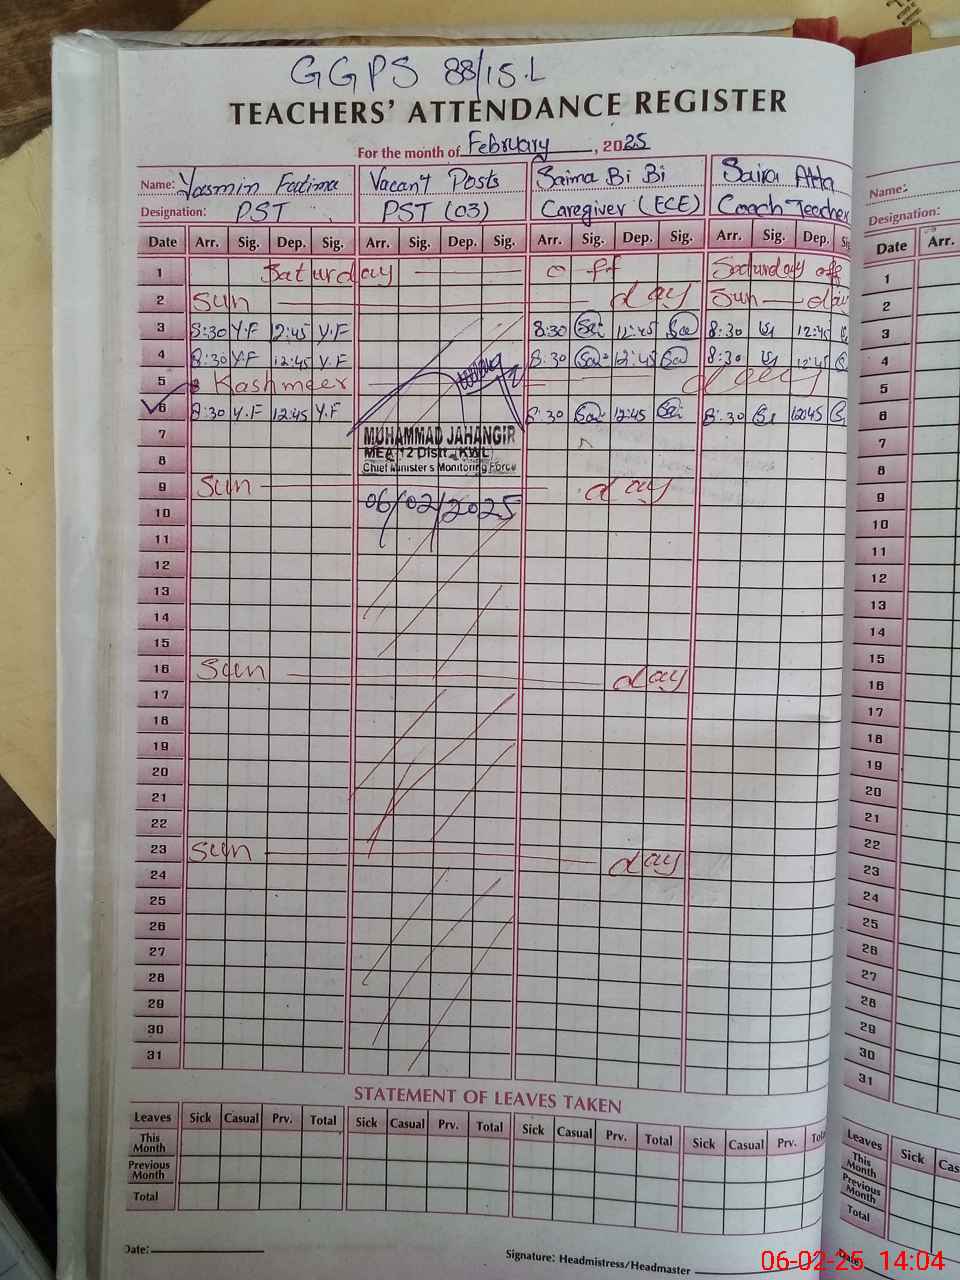 GGPS 88/15.L
TEACHERS' ATTENDANCE REGISTER
For the month of February, 2025
Name: Yasmin Fatima Vacant Posts Saima Bi Bi Saira Atta
Designation: PST PST (03) Caregiver (ECE) Coach Teacher
Date Arr. Sig. Dep. Sig. Arr. Sig. Dep. Sig. Arr. Sig. Dep. Sig. Arr. Sig. Dep. Sig
1 Saturday off Saturday off
2 Sun day Sun day
3 8:30 Y.F 12:45 Y.F 8:30 Sai 12:45 8:30 12:45
4 8:30 Y.F 12:45 Y.F 8:30 Sai 12:45 8:30 12:45
5 Kashmeer day
6 8:30 Y.F 12:45 Y.F 8:30 Sai 12:45 Sai 8:30 12:45
7 MUHAMMAD JAHANGIR
MEA 12 Distt. KWL
8 Chief Minister's Monitoring Force
9 Sun day
10 06/02/2025
11
12
13
14
15
16 Sun day
17
18
19
20
21
22
23 Sun day
24
25
26
27
28
29
30
31
STATEMENT OF LEAVES TAKEN
Leaves Sick Casual Prv. Total Sick Casual Prv. Total Sick Casual Prv. Total Sick Casual Prv.
This Month
Previous Month
Total
Date:
Signature: Headmistress/Headmaster
Name:
Designation:
Date Arr.
1
2
3
4
5
6
7
8
9
10
11
12
13
14
15
16
17
18
19
20
21
22
23
24
25
26
27
28
29
30
31
Leaves Sick Cas
This Month
Previous Month
Total
Date
06-02-25 14:04